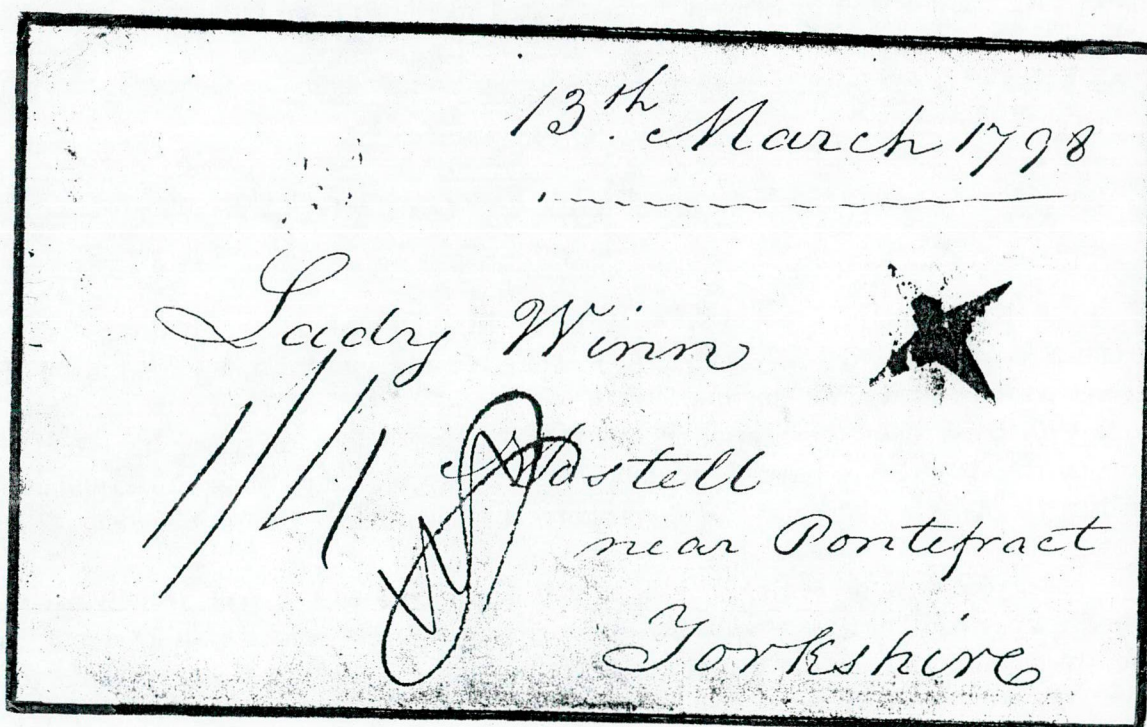 13th. March 1798
Lady Winn
Nostell
near Pontefract
Yorkshire